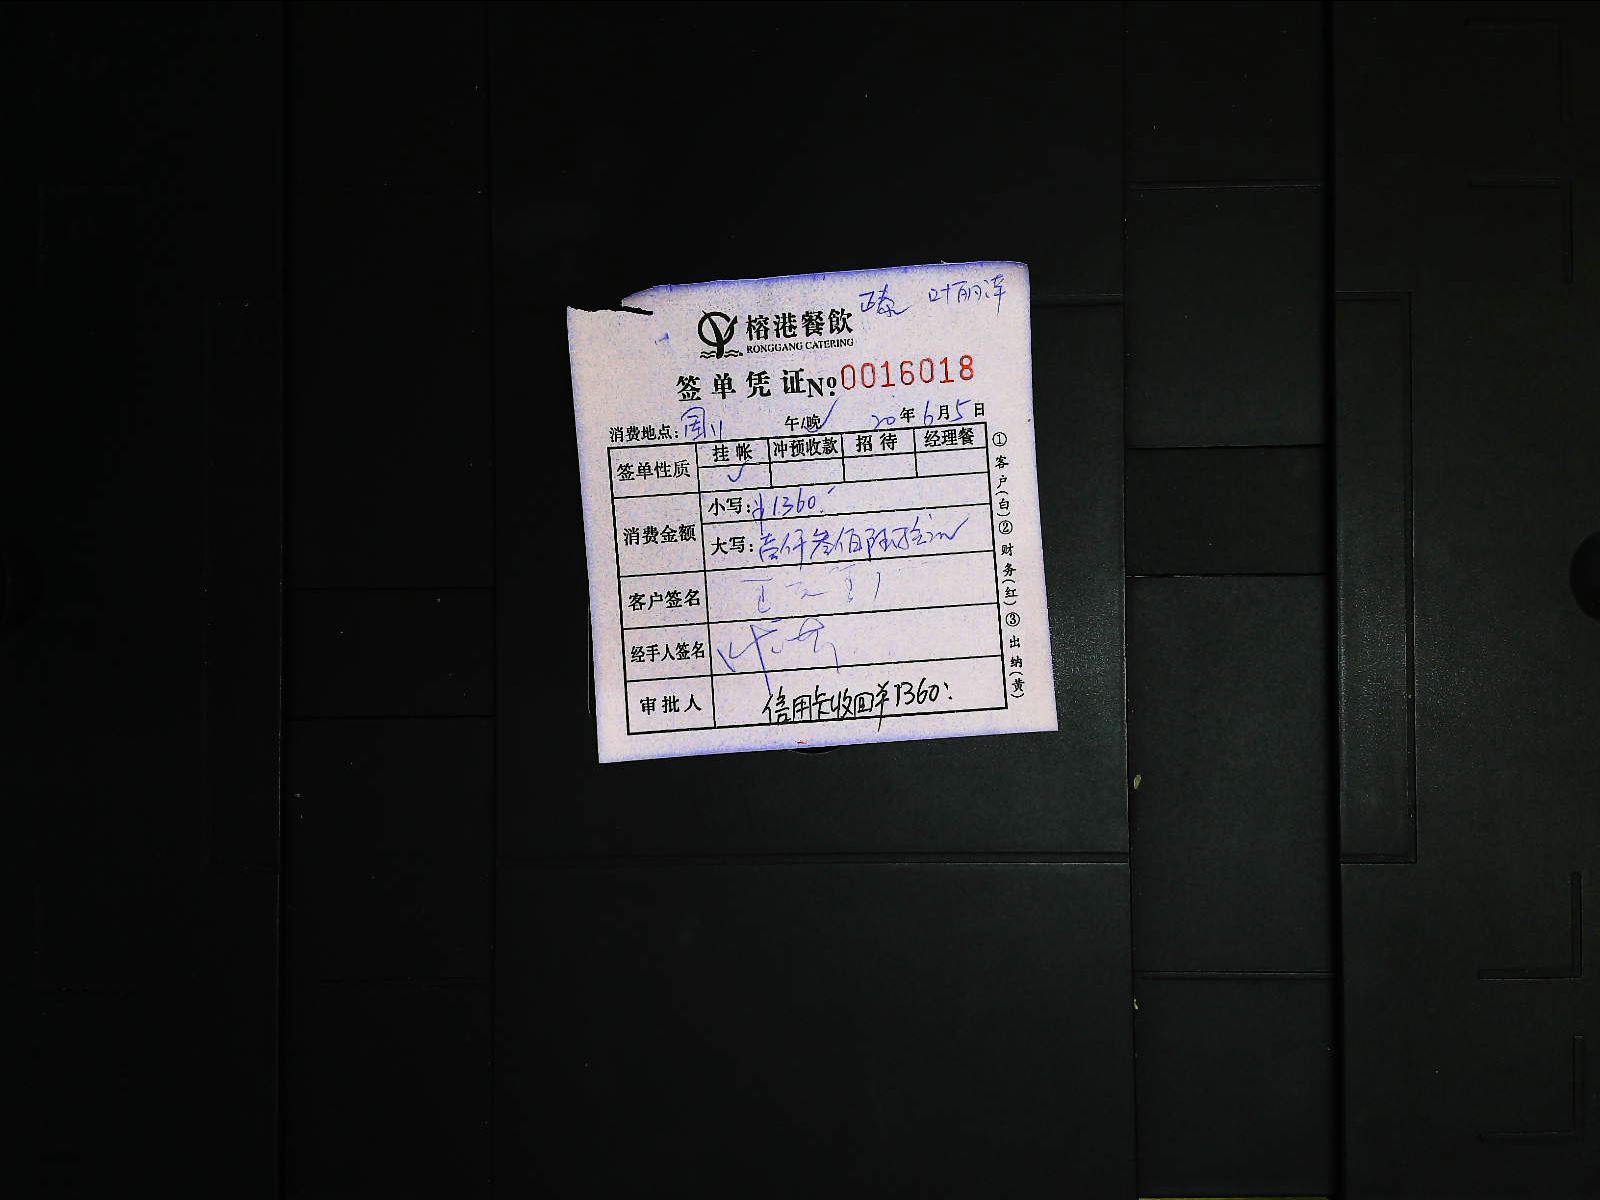 榕港餐飲
RONGGANG CATERING
签单凭证 №.0016018
消费地点: 午/晚✓ 20年6月5日
签单性质 挂帐 冲预收款 招待 经理餐
✓
消费金额 小写:¥1360.
大写:壹仟叁佰陆拾元
客户签名
经手人签名
审批人 信用卡收回单1360.
①客户(白)②财务(红)③出纳(黄)